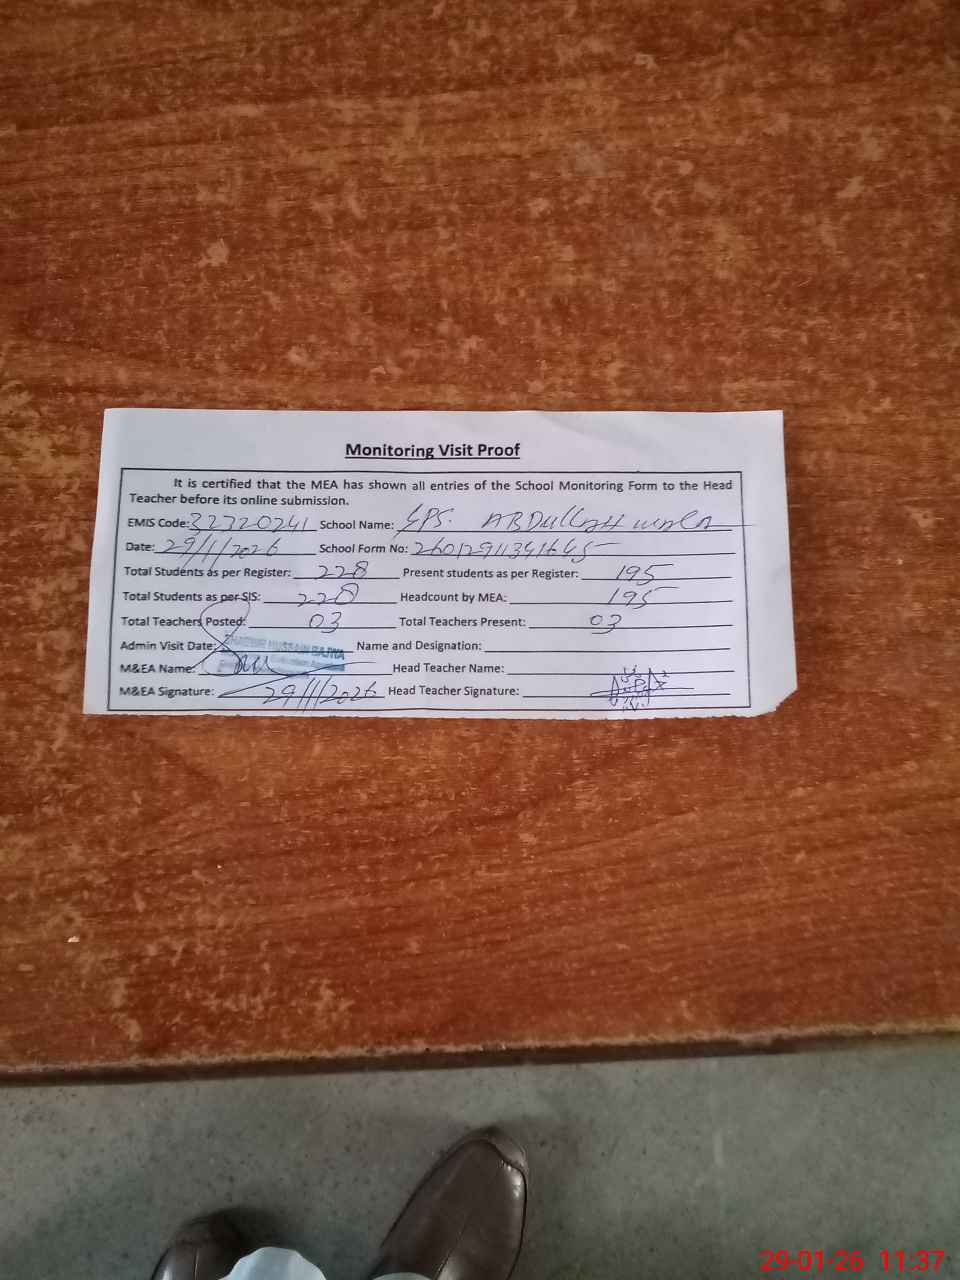 Monitoring Visit Proof
It is certified that the MEA has shown all entries of the School Monitoring Form to the Head
Teacher before its online submission.
EMIS Code: 32320241 School Name: GPS. ABDULLAH WALA
Date: 29/1/2026 School Form No:
Total Students as per Register: 228 Present students as per Register: 195
Total Students as per SIS: 228 Headcount by MEA: 195
Total Teachers Posted: 03 Total Teachers Present: 03
Admin Visit Date: HUSSAIN BAJWA Name and Designation:
M&EA Name: Head Teacher Name:
M&EA Signature: 29/1/2026 Head Teacher Signature:
29-01-26 11:37